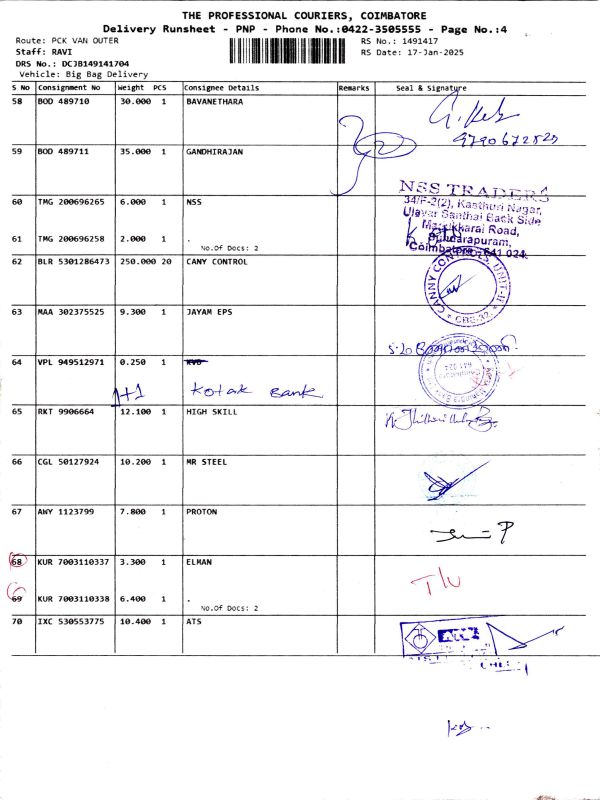 THE PROFESSIONAL COURIERS, COIMBATORE
Delivery Runsheet - PNP - Phone No.:0422-3505555 - Page No.:4
Route: PCK VAN OUTER
RS No.: 1491417
Staff: RAVI
RS Date: 17-Jan-2025
DRS No.: DCJB149141704
Vehicle: Big Bag Delivery
S No Consignment No Weight PCS Consignee Details Remarks Seal & Signature
58 BOD 489710 30.000 1 BAVANETHARA
59 BOD 489711 35.000 1 GANDHIRAJAN
60 TMG 200696265 6.000 1 NSS
NSS TRADERS
34/F-2(2), Kasthuri Nagar,
Ulavar Santhai Back Side
Masakkarai Road,
Sundarapuram,
Coimbatore - 641 024.
61 TMG 200696258 2.000 1 .
No.Of Docs: 2
62 BLR 5301286473 250.000 20 CANY CONTROL
CANNY CONTROLS UNIT-II
CBE-32
63 MAA 302375525 9.300 1 JAYAM EPS
64 VPL 949512971 0.250 1
1+1 Kotak Bank
65 RKT 9906664 12.100 1 HIGH SKILL
66 CGL 50127924 10.200 1 MR STEEL
67 AWY 1123799 7.800 1 PROTON
68 KUR 7003110337 3.300 1 ELMAN
T/U
69 KUR 7003110338 6.400 1 .
No.Of Docs: 2
70 IXC 530553775 10.400 1 ATS